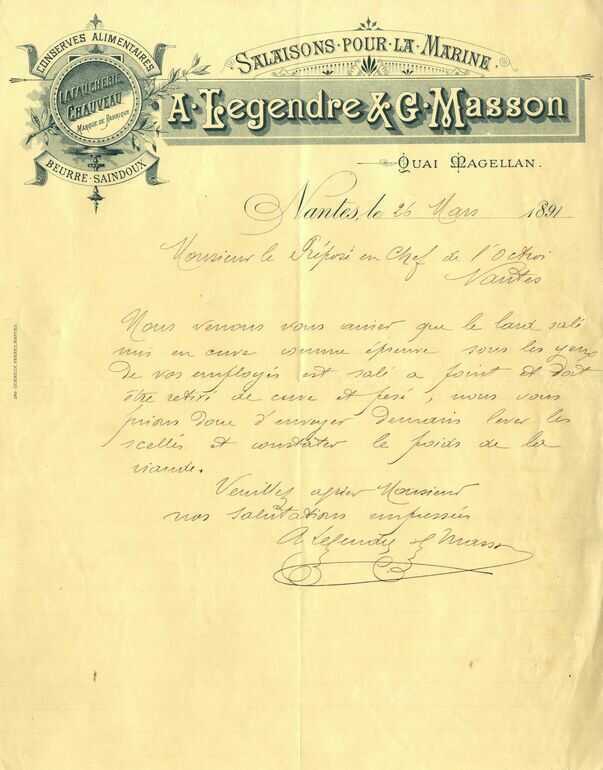 CONSERVES ALIMENTAIRES
LAFAUCHERIE
CHAUVEAU
MARQUE DE FABRIQUE
BEURRE·SAINDOUX
SALAISONS·POUR·LA·MARINE.
A·Legendre & G·Masson
QUAI MAGELLAN.
Nantes, le 26 Mars 1891
Monsieur le Préposé en Chef de l'Octroi
Nantes
Nous venons vous aviser que le lard salé
mis en cuve comme épreuve sous les yeux
de vos employés est salé a point et doit
être retiré de cuve et pesé, nous vous
prions donc d'envoyer demain lever les
scellés et constater le poids de la
viande.
Veuillez agréer Monsieur
nos salutations empressées
A Legendre & G Masson